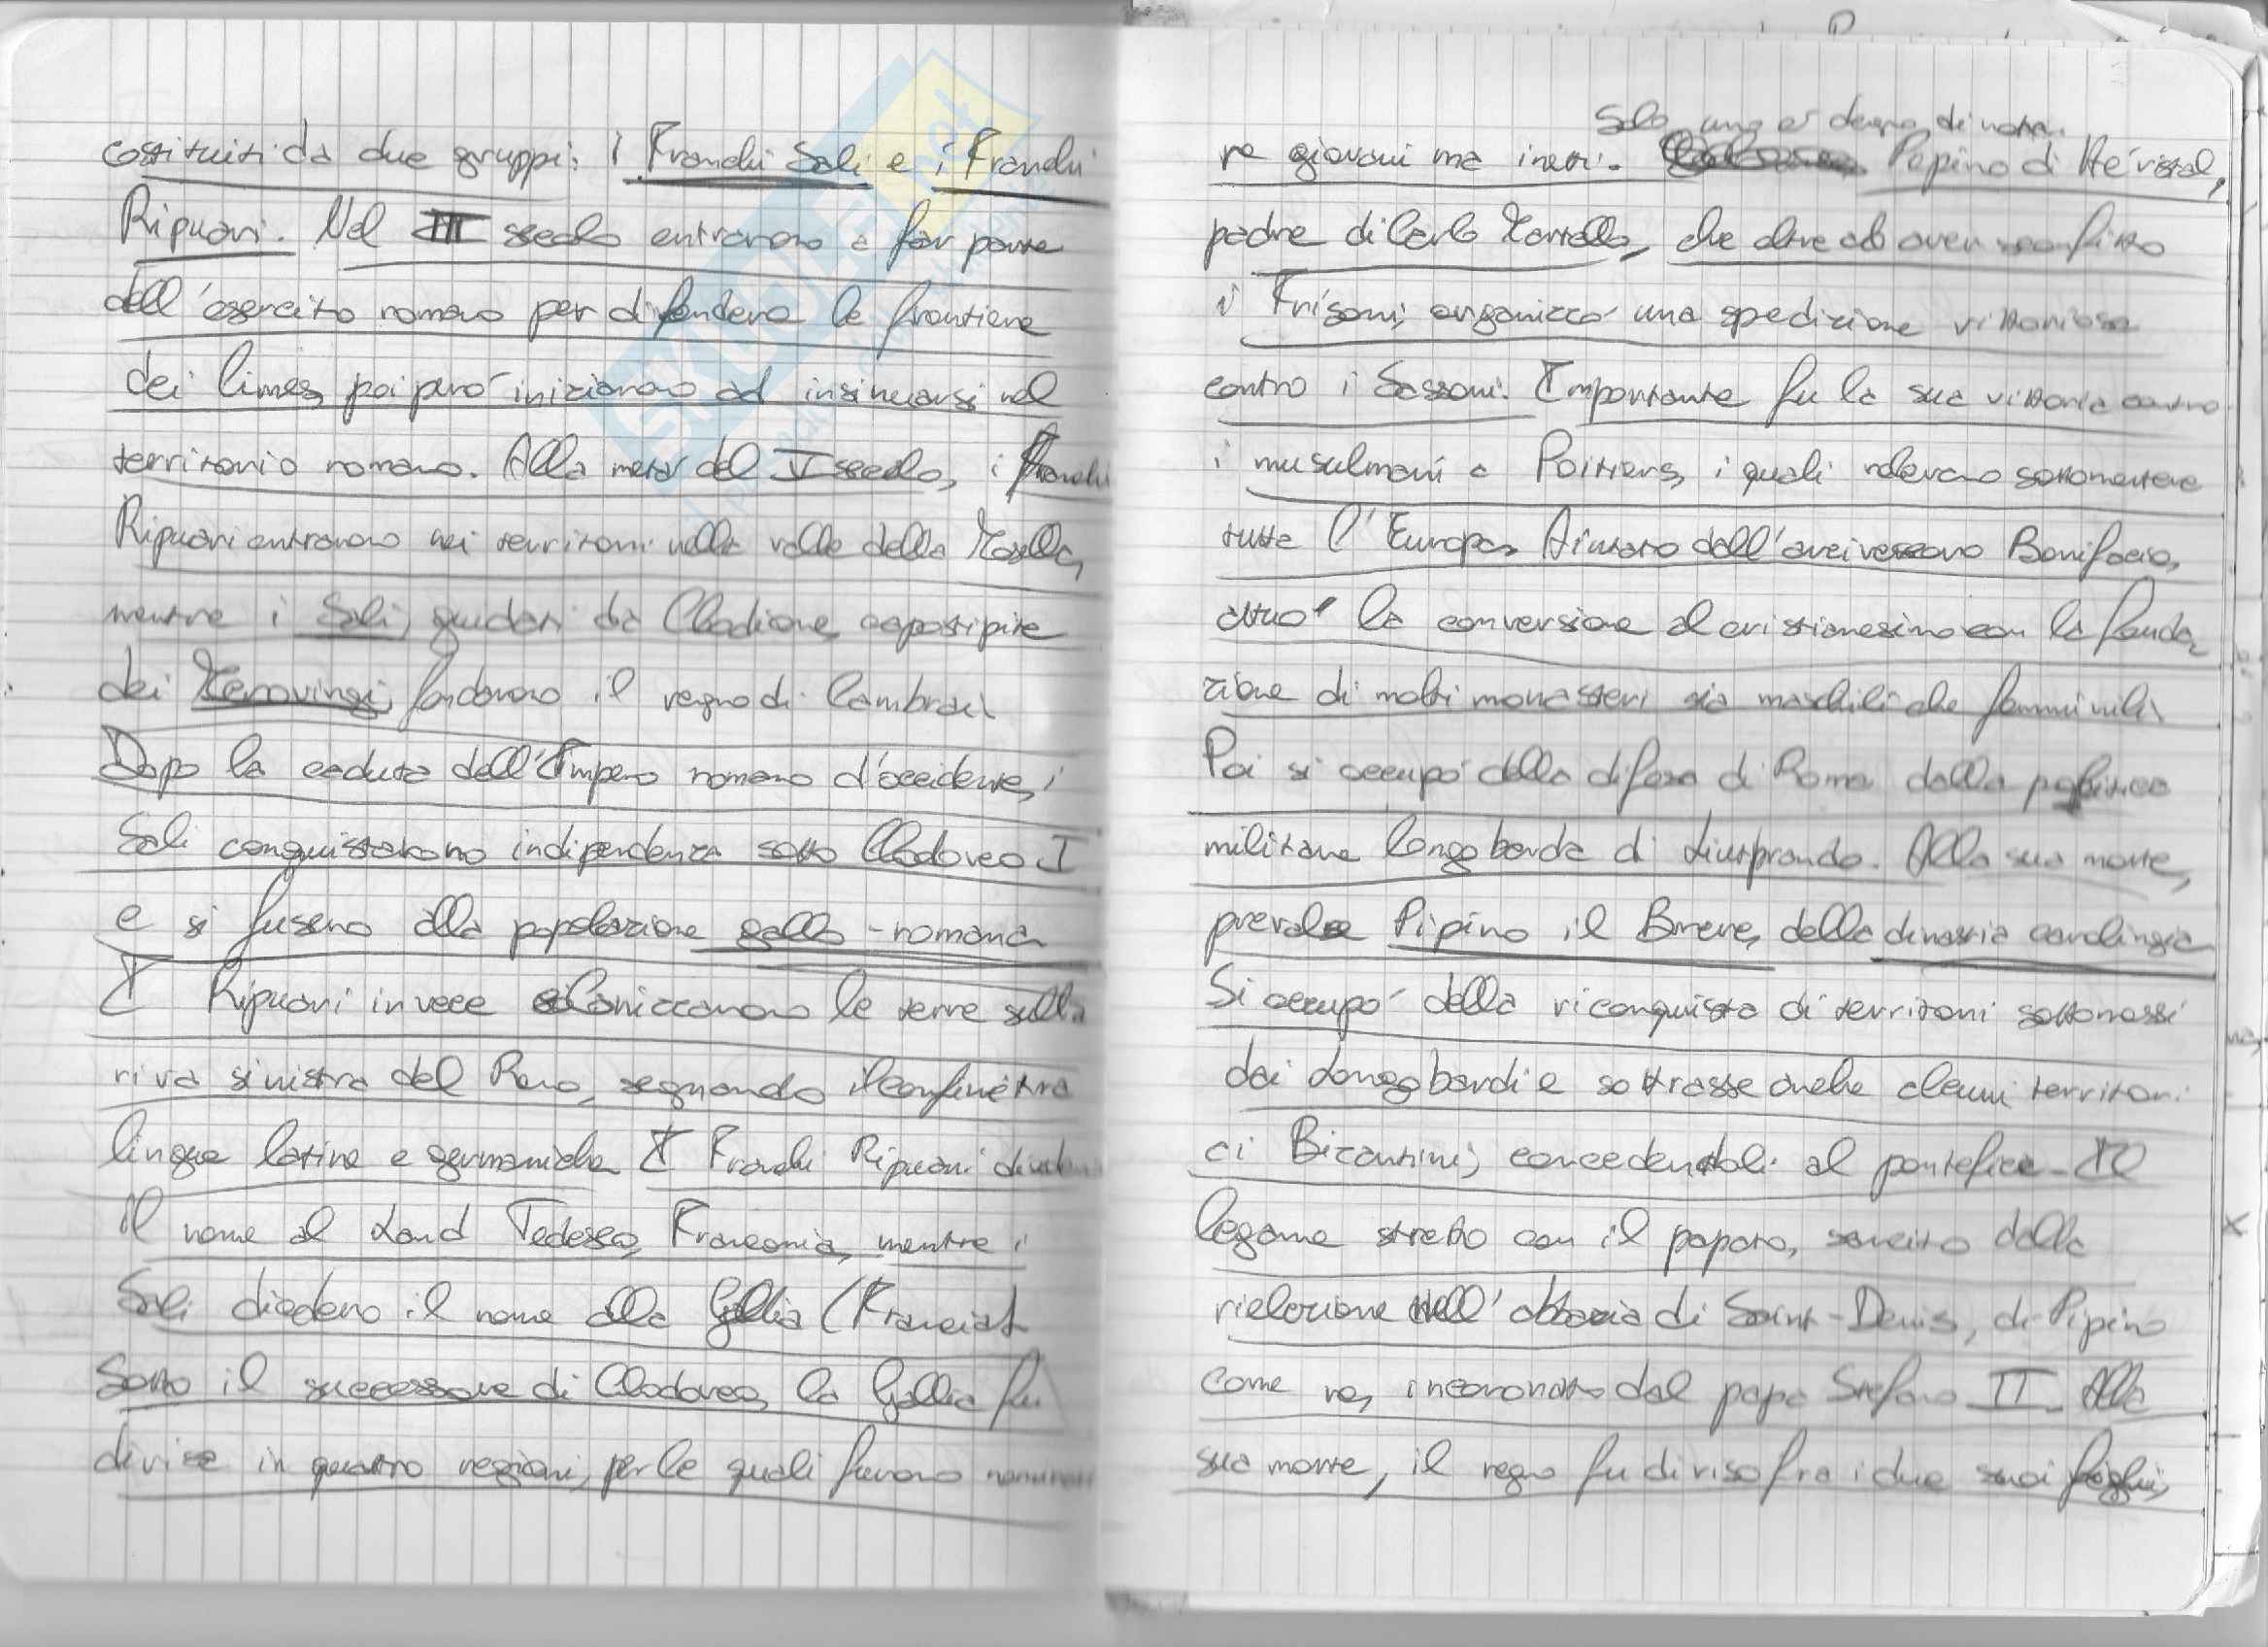 costituiti da due gruppi: i Franchi Sali e i Franchi
Ripuari. Nel III secolo entrarono a far parte
dell'esercito romano per difendere le frontiere
dei limes, poi però iniziarono ad insinuarsi nel
territorio romano. Alla metà del V secolo, i Franchi
Ripuari entrarono nei territori nella valle della Mosella,
mentre i Sali, guidati da Clodione, capostipite
dei Merovingi, fondarono il regno di Cambrai
Dopo la caduta dell'Impero romano d'occidente, i
Sali conquistarono indipendenza sotto Clodoveo I
e si fusero alla popolazione gallo-romana
I Ripuari invece colonizzarono le terre sulla
riva sinistra del Reno, segnando il confine tra
lingue latine e germaniche I Franchi Ripuari diedero
il nome al Land Tedesco, Franconia, mentre i
Sali diedero il nome alla Gallia (Francia).
Sotto il successore di Clodoveo, la Gallia fu
divisa in quattro regioni, per le quali furono nominati
Solo uno è degno di nota.
re giovani ma inetti. Pepino di Héristal,
padre di Carlo Martello, che oltre ad aver sconfitto
i Frisoni, organizzò una spedizione vittoriosa
contro i Sassoni. Importante fu la sua vittoria contro
i musulmani a Poitiers, i quali volevano sottomettere
tutta l'Europa. Aiutato dall'arcivescovo Bonifacio,
attuò la conversione al cristianesimo con la fonda
zione di molti monasteri sia maschili che femminili
Poi si occupò della difesa di Roma dalla politica
militare longobarda di Liutprando. Alla sua morte,
prevalse Pipino il Breve, della dinastia carolingia
Si occupò della riconquista di territori sottomessi
dai Longobardi e sottrasse anche alcuni territori
ai Bizantini, concedendoli al pontefice. Il
legame stretto con il papato, sancito dalla
rielezione nell'abbazia di Saint-Denis, di Pipino
come re, incoronato dal papa Stefano II. Alla
sua morte, il regno fu diviso fra i due suoi figli,